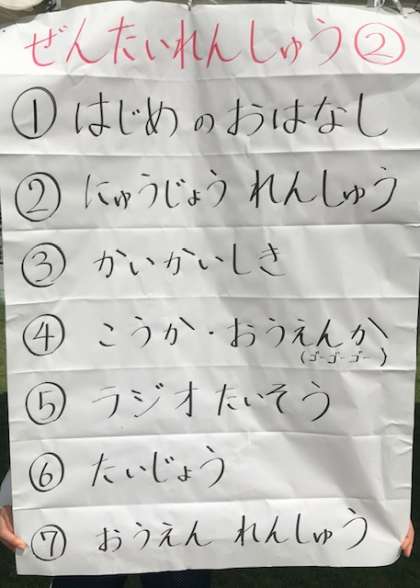 ぜんたいれんしゅう②
① はじめのおはなし
② にゅうじょう れんしゅう
③ かいかいしき
④ こうか・おうえんか
(ゴーゴーゴー)
⑤ ラジオたいそう
⑥ たいじょう
⑦ おうえん れんしゅう